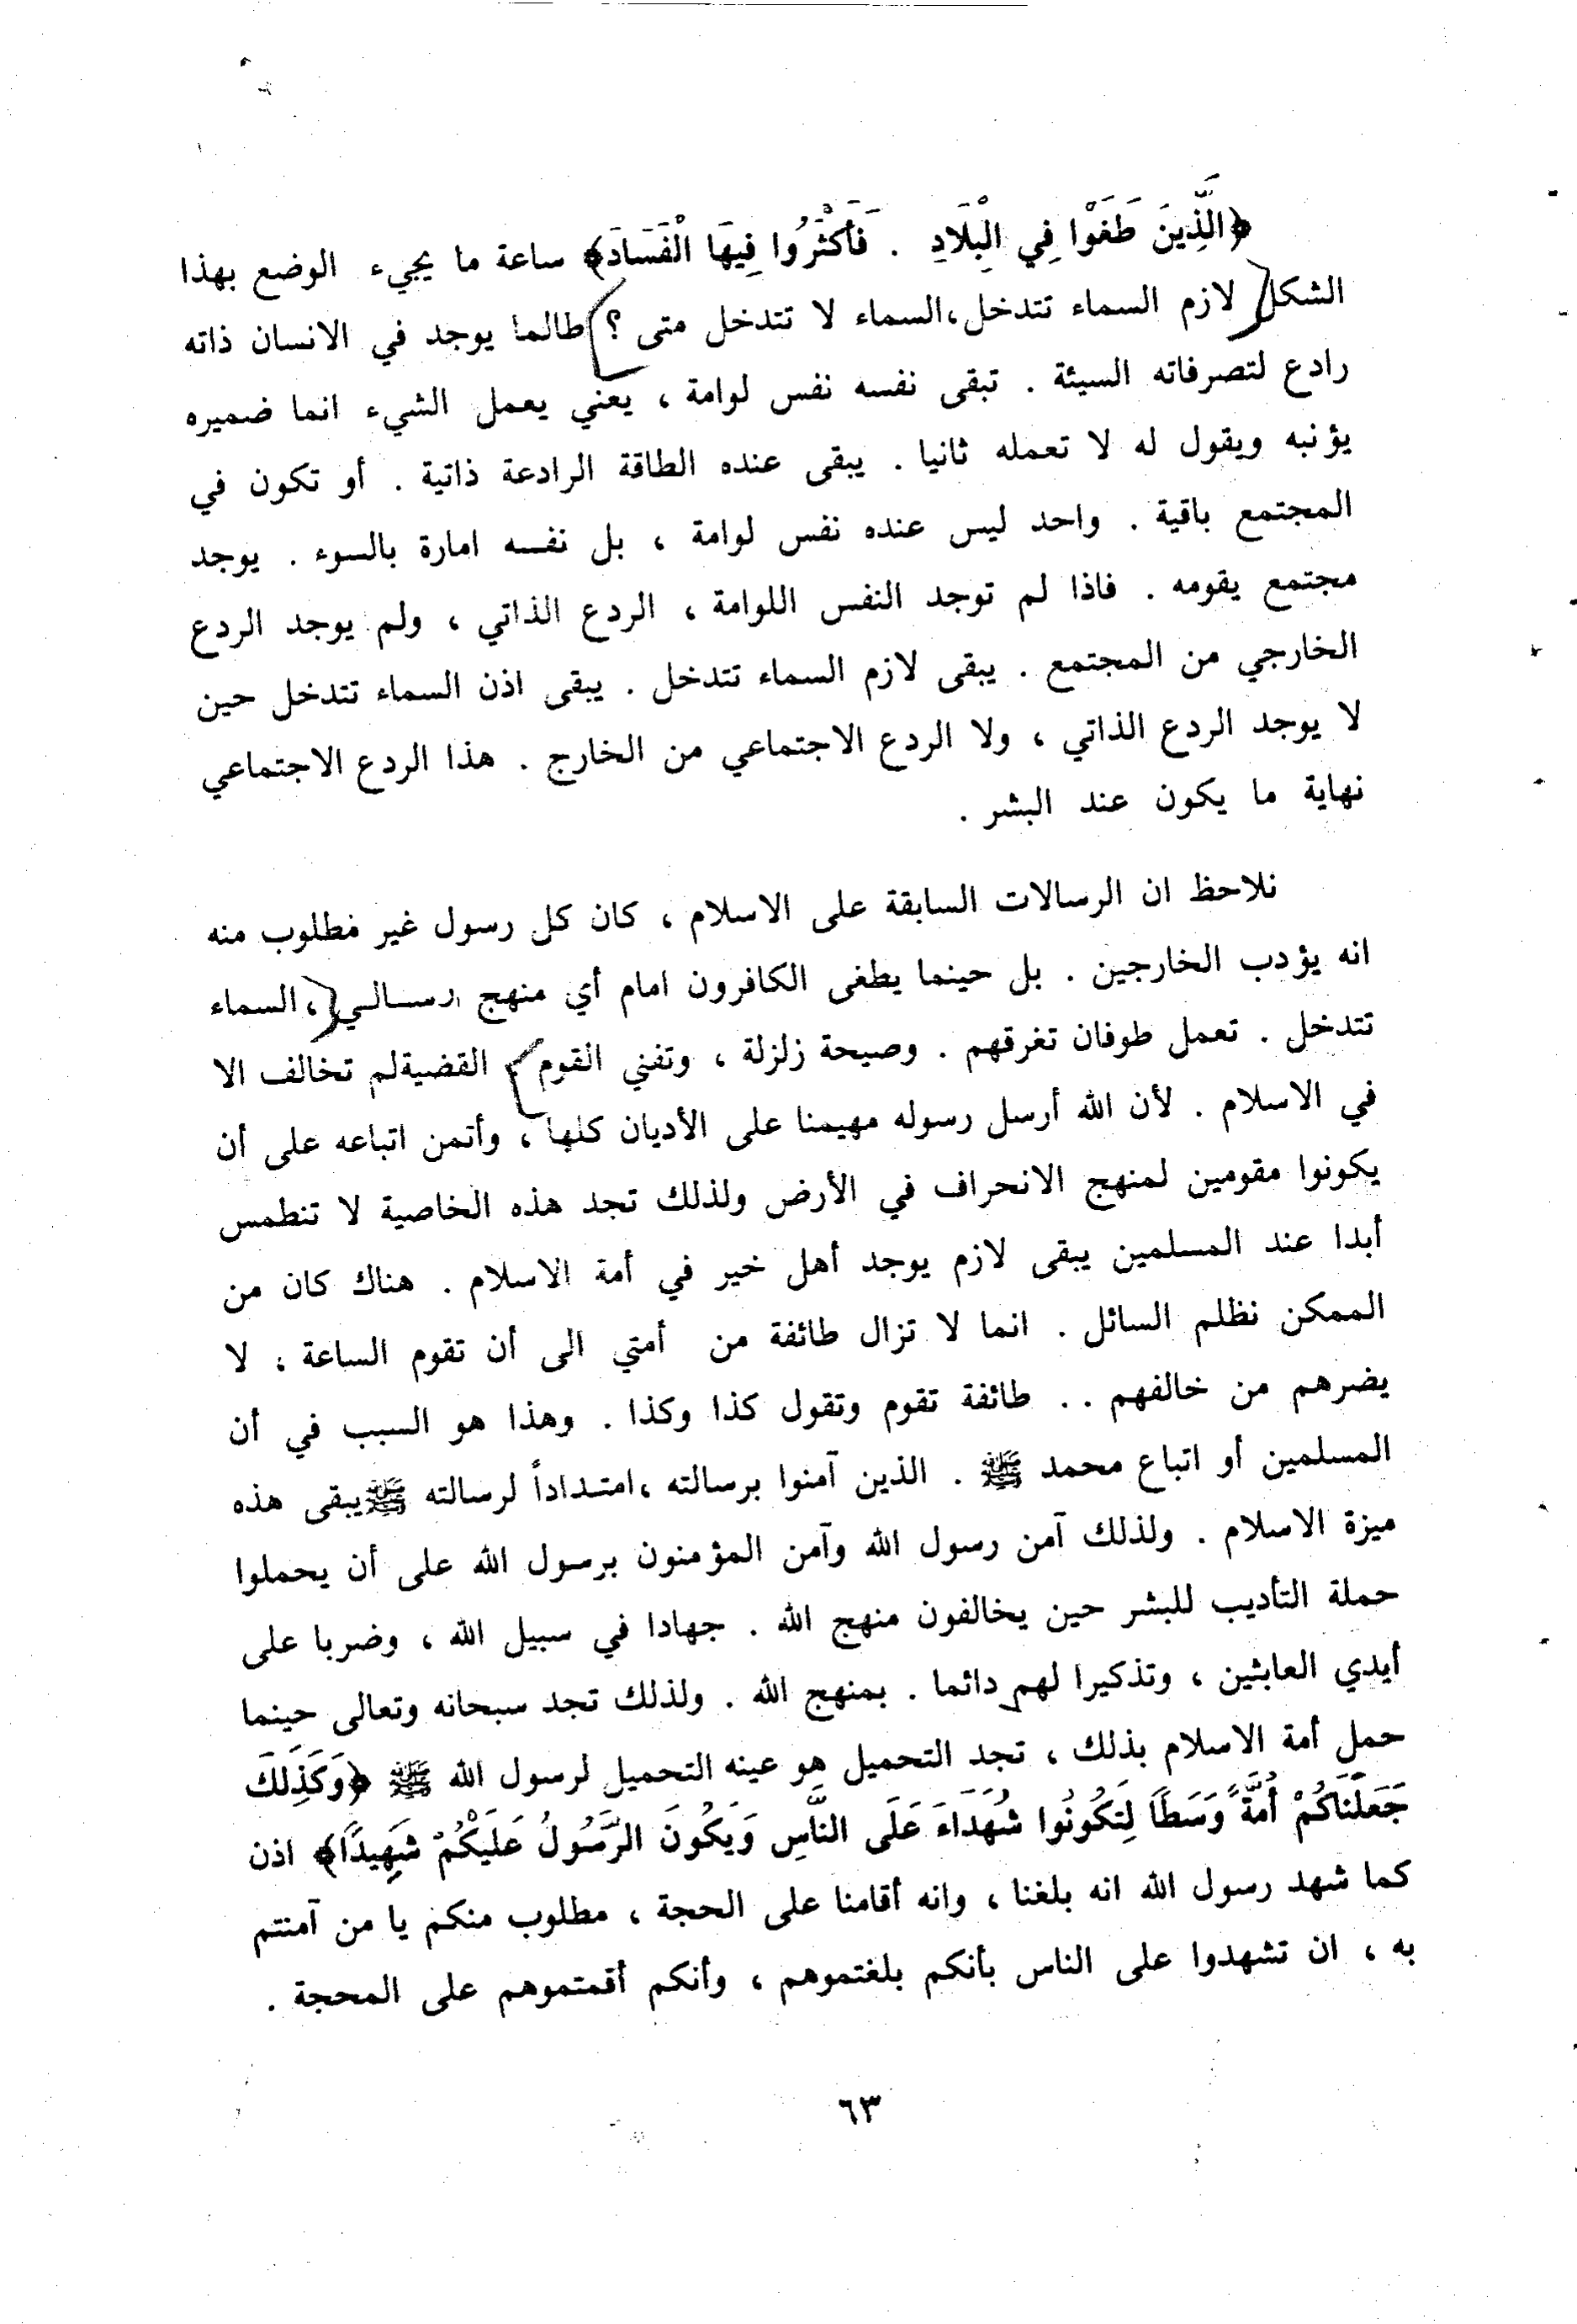 ﴿الَّذِينَ طَغَوْا فِي الْبِلَادِ . فَأَكْثَرُوا فِيهَا الْفَسَادَ﴾ ساعة ما يجيء الوضع بهذا
الشكل لازم السماء تتدخل ،السماء لا تتدخل متى ؟ طالما يوجد في الانسان ذاته
رادع لتصرفاته السيئة . تبقى نفسه نفس لوامة ، يعني يعمل الشيء انما ضميره
يؤنبه ويقول له لا تعمله ثانيا . يبقى عنده الطاقة الرادعة ذاتية . أو تكون في
المجتمع باقية . واحد ليس عنده نفس لوامة ، بل نفسه امارة بالسوء . يوجد
مجتمع يقومه . فاذا لم توجد النفس اللوامة ، الردع الذاتي ، ولم يوجد الردع
الخارجي من المجتمع . يبقى لازم السماء تتدخل . يبقى اذن السماء تتدخل حين
لا يوجد الردع الذاتي ، ولا الردع الاجتماعي من الخارج . هذا الردع الاجتماعي
نهاية ما يكون عند البشر .
نلاحظ ان الرسالات السابقة على الاسلام ، كان كل رسول غير مطلوب منه
انه يؤدب الخارجين . بل حينما يطغى الكافرون امام أي منهج رسالي ، السماء
تتدخل . تعمل طوفان تغرقهم . وصيحة زلزلة ، وتفني القوم . القضية لم تخالف الا
في الاسلام . لأن الله أرسل رسوله مهيمنا على الأديان كلها ، وأتمن اتباعه على أن
يكونوا مقومين لمنهج الانحراف في الأرض ولذلك تجد هذه الخاصية لا تنطمس
أبدا عند المسلمين يبقى لازم يوجد أهل خير في أمة الاسلام . هناك كان من
الممكن نظلم السائل . انما لا تزال طائفة من أمتي الى أن تقوم الساعة ، لا
يضرهم من خالفهم . . طائفة تقوم وتقول كذا وكذا . وهذا هو السبب في أن
المسلمين أو اتباع محمد ﷺ . الذين آمنوا برسالته ،امتداداً لرسالته ﷺ يبقى هذه
ميزة الاسلام . ولذلك آمن رسول الله وآمن المؤمنون برسول الله على أن يحملوا
حملة التأديب للبشر حين يخالفون منهج الله . جهادا في سبيل الله ، وضربا على
أيدي العابثين ، وتذكيرا لهم دائما . بمنهج الله . ولذلك تجد سبحانه وتعالى حينما
حمل أمة الاسلام بذلك ، تجد التحميل هو عينه التحميل لرسول الله ﷺ ﴿وَكَذَلِكَ
جَعَلْنَاكُمْ أُمَّةً وَسَطًا لِتَكُونُوا شُهَدَاءَ عَلَى النَّاسِ وَيَكُونَ الرَّسُولُ عَلَيْكُمْ شَهِيدًا﴾ اذن
كما شهد رسول الله انه بلغنا ، وانه أقامنا على الحجة ، مطلوب منكم يا من آمنتم
به ، ان تشهدوا على الناس بأنكم بلغتموهم ، وأنكم أقمتموهم على المحجة .
٦٣